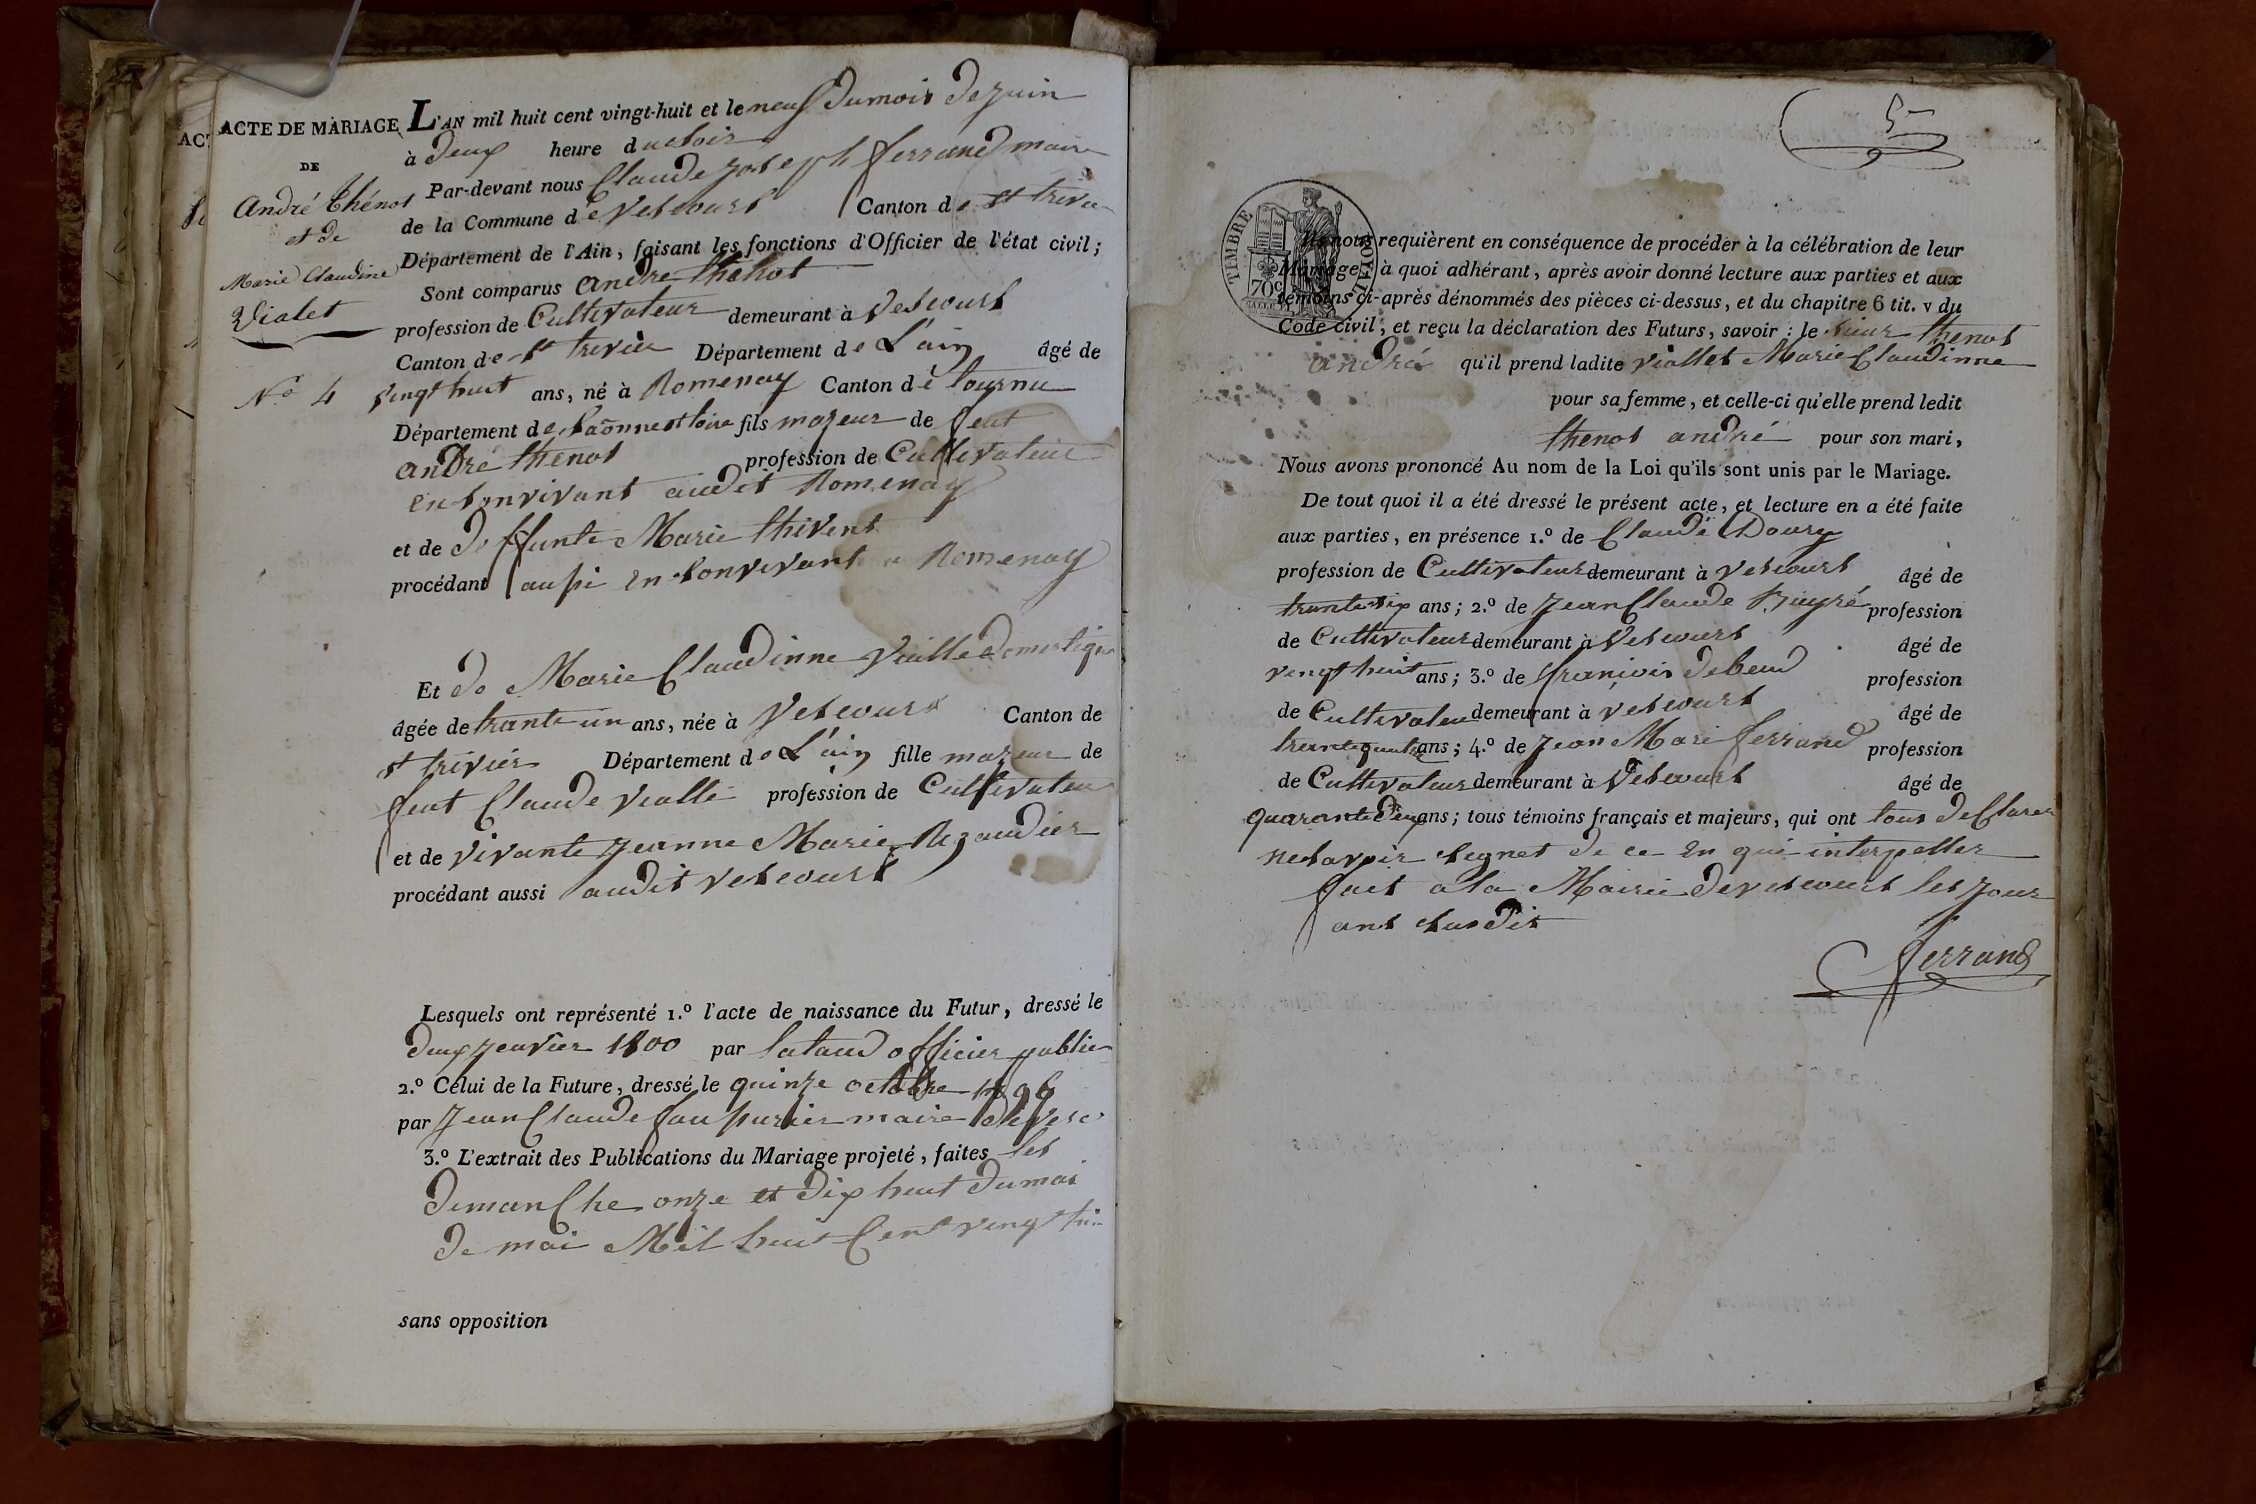 ACTE DE MARIAGE
DE
André Thénot
et de
Marie Claudine
Vialet
N.o 4
L'AN mil huit cent vingt-huit et le neuf du mois de juin
à deux heure du soir
Par-devant nous Claude joseph ferrand maire
de la Commune de Vescours Canton de st trivier
Département de l'Ain, faisant les fonctions d'Officier de l'état civil;
Sont comparus andre thenot
profession de Cultivateur demeurant à Vescours
Canton de st trivier Département de L'ain âgé de
vingt huit ans, né à Romenay Canton de tournu
Département de Saonne et loire fils majeur de feut
andré thenot profession de Cultivateur
en son vivant audit Romenay
et de deffunte Marie thivent
procédant aussi en son vivant a Romenay
Et de Marie Claudinne Vialle domestique
âgée de trante un ans, née à Vescours Canton de
st trivier Département de L'ain fille majeur de
feut Claude vialle profession de Cultivateur
et de vivante jeanne Marie
procédant aussi audit vescours
Lesquels ont représenté 1.o l'acte de naissance du Futur, dressé le
deux jenvier 1800 par lataud officier public
2.o Celui de la Future, dressé le quinze octobre 1796
par jean Claude maire de vesc
3.o L'extrait des Publications du Mariage projeté, faites les
dimanche onze et dix huit du mai
de mai Mil huit Cent vingt hui
sans opposition
5
TIMBRE ROYAL
70c
Ils nous requièrent en conséquence de procéder à la célébration de leur
Mariage, à quoi adhérant, après avoir donné lecture aux parties et aux
témoins ci-après dénommés des pièces ci-dessus, et du chapitre 6 tit. v du
Code civil, et reçu la déclaration des Futurs, savoir: le sieur thenot
andré qu'il prend ladite viallet Marie Claudinne
pour sa femme, et celle-ci qu'elle prend ledit
thenot andré pour son mari,
Nous avons prononcé Au nom de la Loi qu'ils sont unis par le Mariage.
De tout quoi il a été dressé le présent acte, et lecture en a été faite
aux parties, en présence 1.o de Claude Doury
profession de Cultivateur demeurant à vescours âgé de
trante six ans; 2.o de jean Claude profession
de Cultivateur demeurant à Vescours âgé de
vingt huit ans; 3.o de françois debeud profession
de Cultivateur demeurant à vescours âgé de
trante quatre ans; 4.o de jean Marie ferrand profession
de Cultivateur demeurant à Vescours âgé de
quarante deux ans; tous témoins français et majeurs, qui ont tous declarer
ne savoir signer de ce en qui interpeller
fait a la Mairie de vescours les jour
ans susdit
ferrand